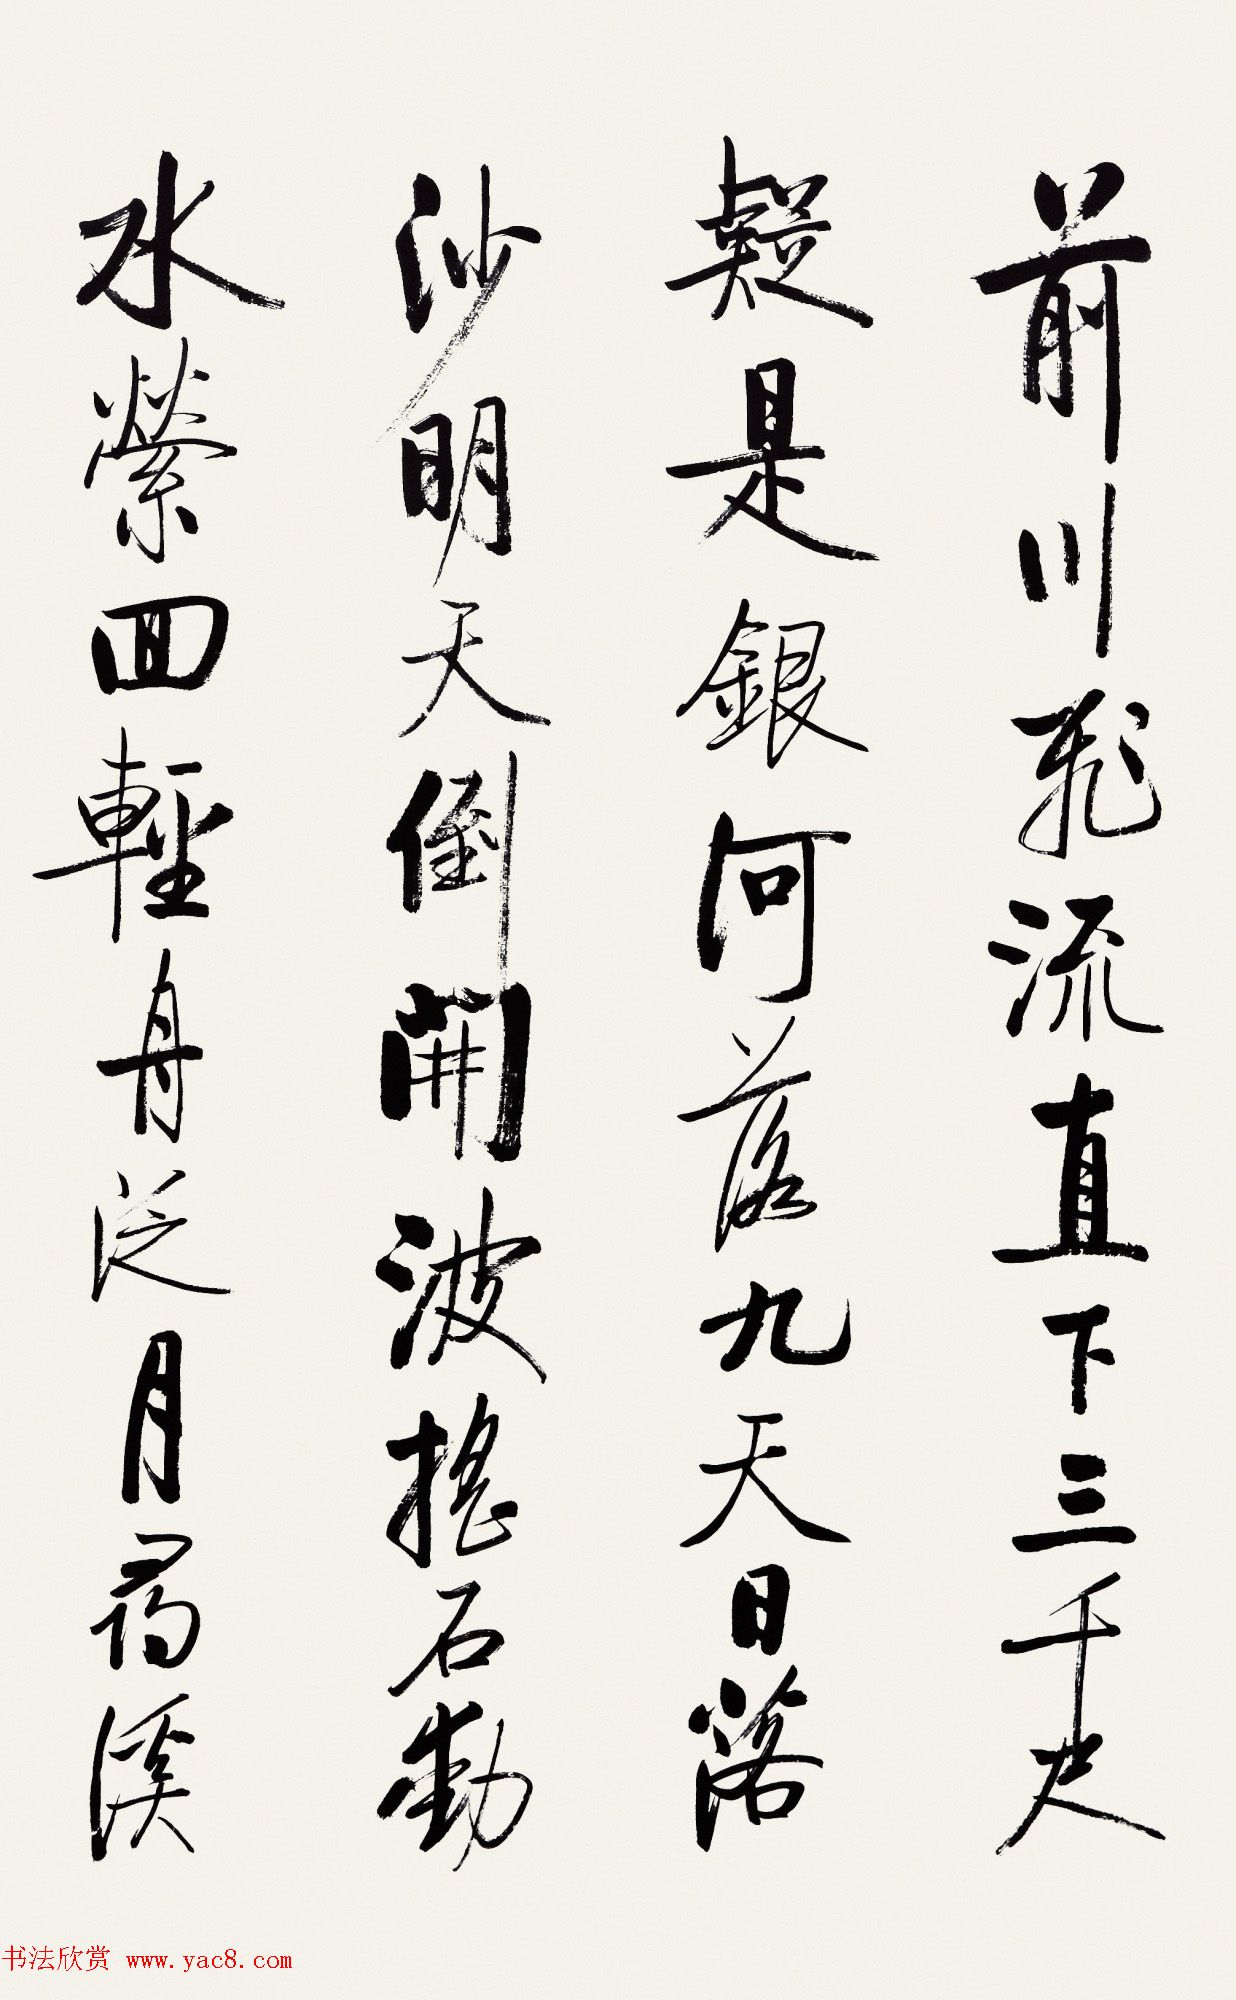 前川飛流直下三千尺
疑是銀河落九天日落
沙明天倒開波搖石動
水縈回輕舟泛月尋溪
书法欣赏 www.yac8.com